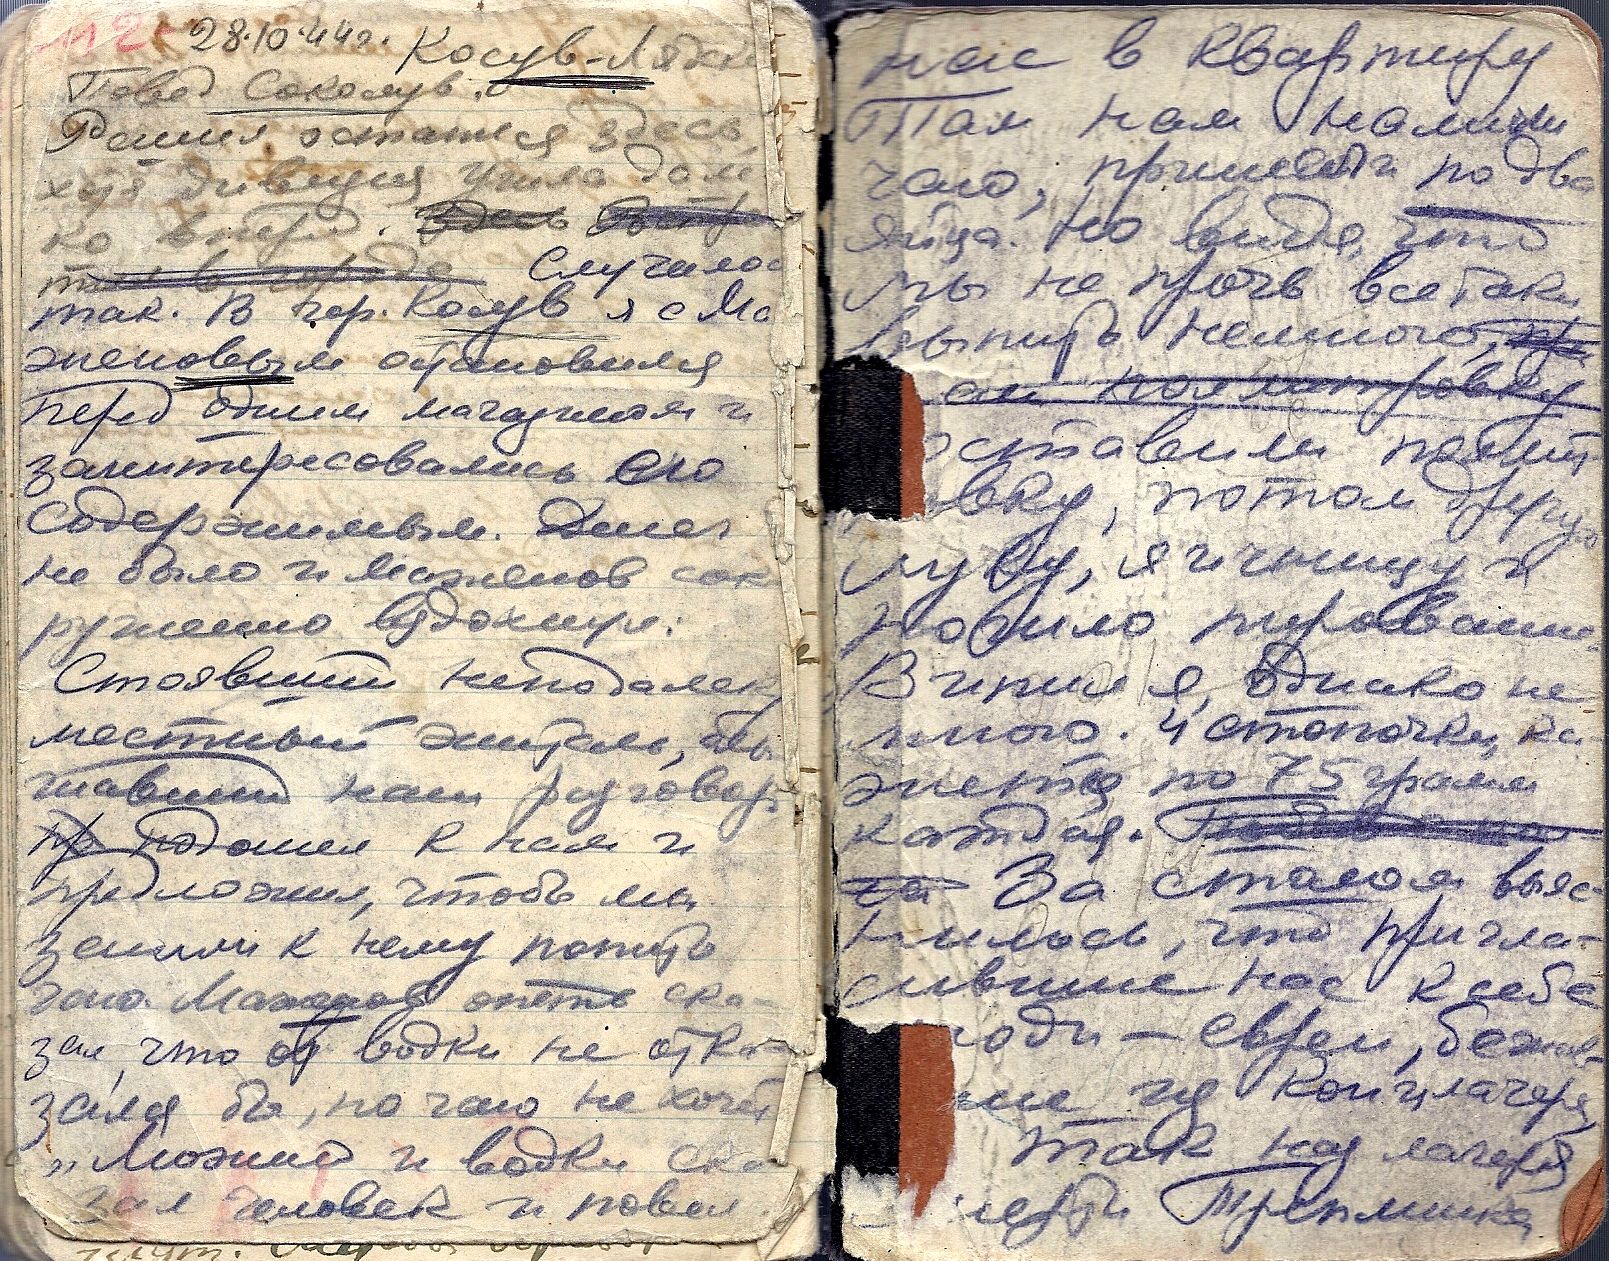 28.10.44г. Косув-Лядск
Повед Соколув.
Решил остаться здесь,
хотя дивизия ушла дале
ко вперед. Здесь
так в городе Случилось
так. В гор. Косув я с Ма
женовым остановился
перед одним магазином и
заинтересовались его
содержимым. Денег
не было и Маженов сок
рушенно вздохнул:
Стоявший неподалеку
местный житель, слы
шавший наш разговор,
пр подошел к нам и
предложил, чтобы мы
зашли к нему попить
чаю. Маженов ска-
зал, что от водки не отка-
зался бы, но чаю не хочет
„Можно и водки ска
зал человек и повел
нас в квартиру
Там нам налили
чаю, принесли по два
яйца. Но видя, что
мы не прочь всетаки
выпить немного, пр
поллитровку
оставили поллит
ровку, потом другую
яичницу и
пошло пированье.
Выпил я, однако не
много. 4 стопочки, ка-
жется по 75 грамм
каждая.
За столом выяс-
нилось, что пригла-
сившие нас к себе
люди — евреи, бежав-
шие из концлагеря
Так наз лагеря
смерти Треплинка